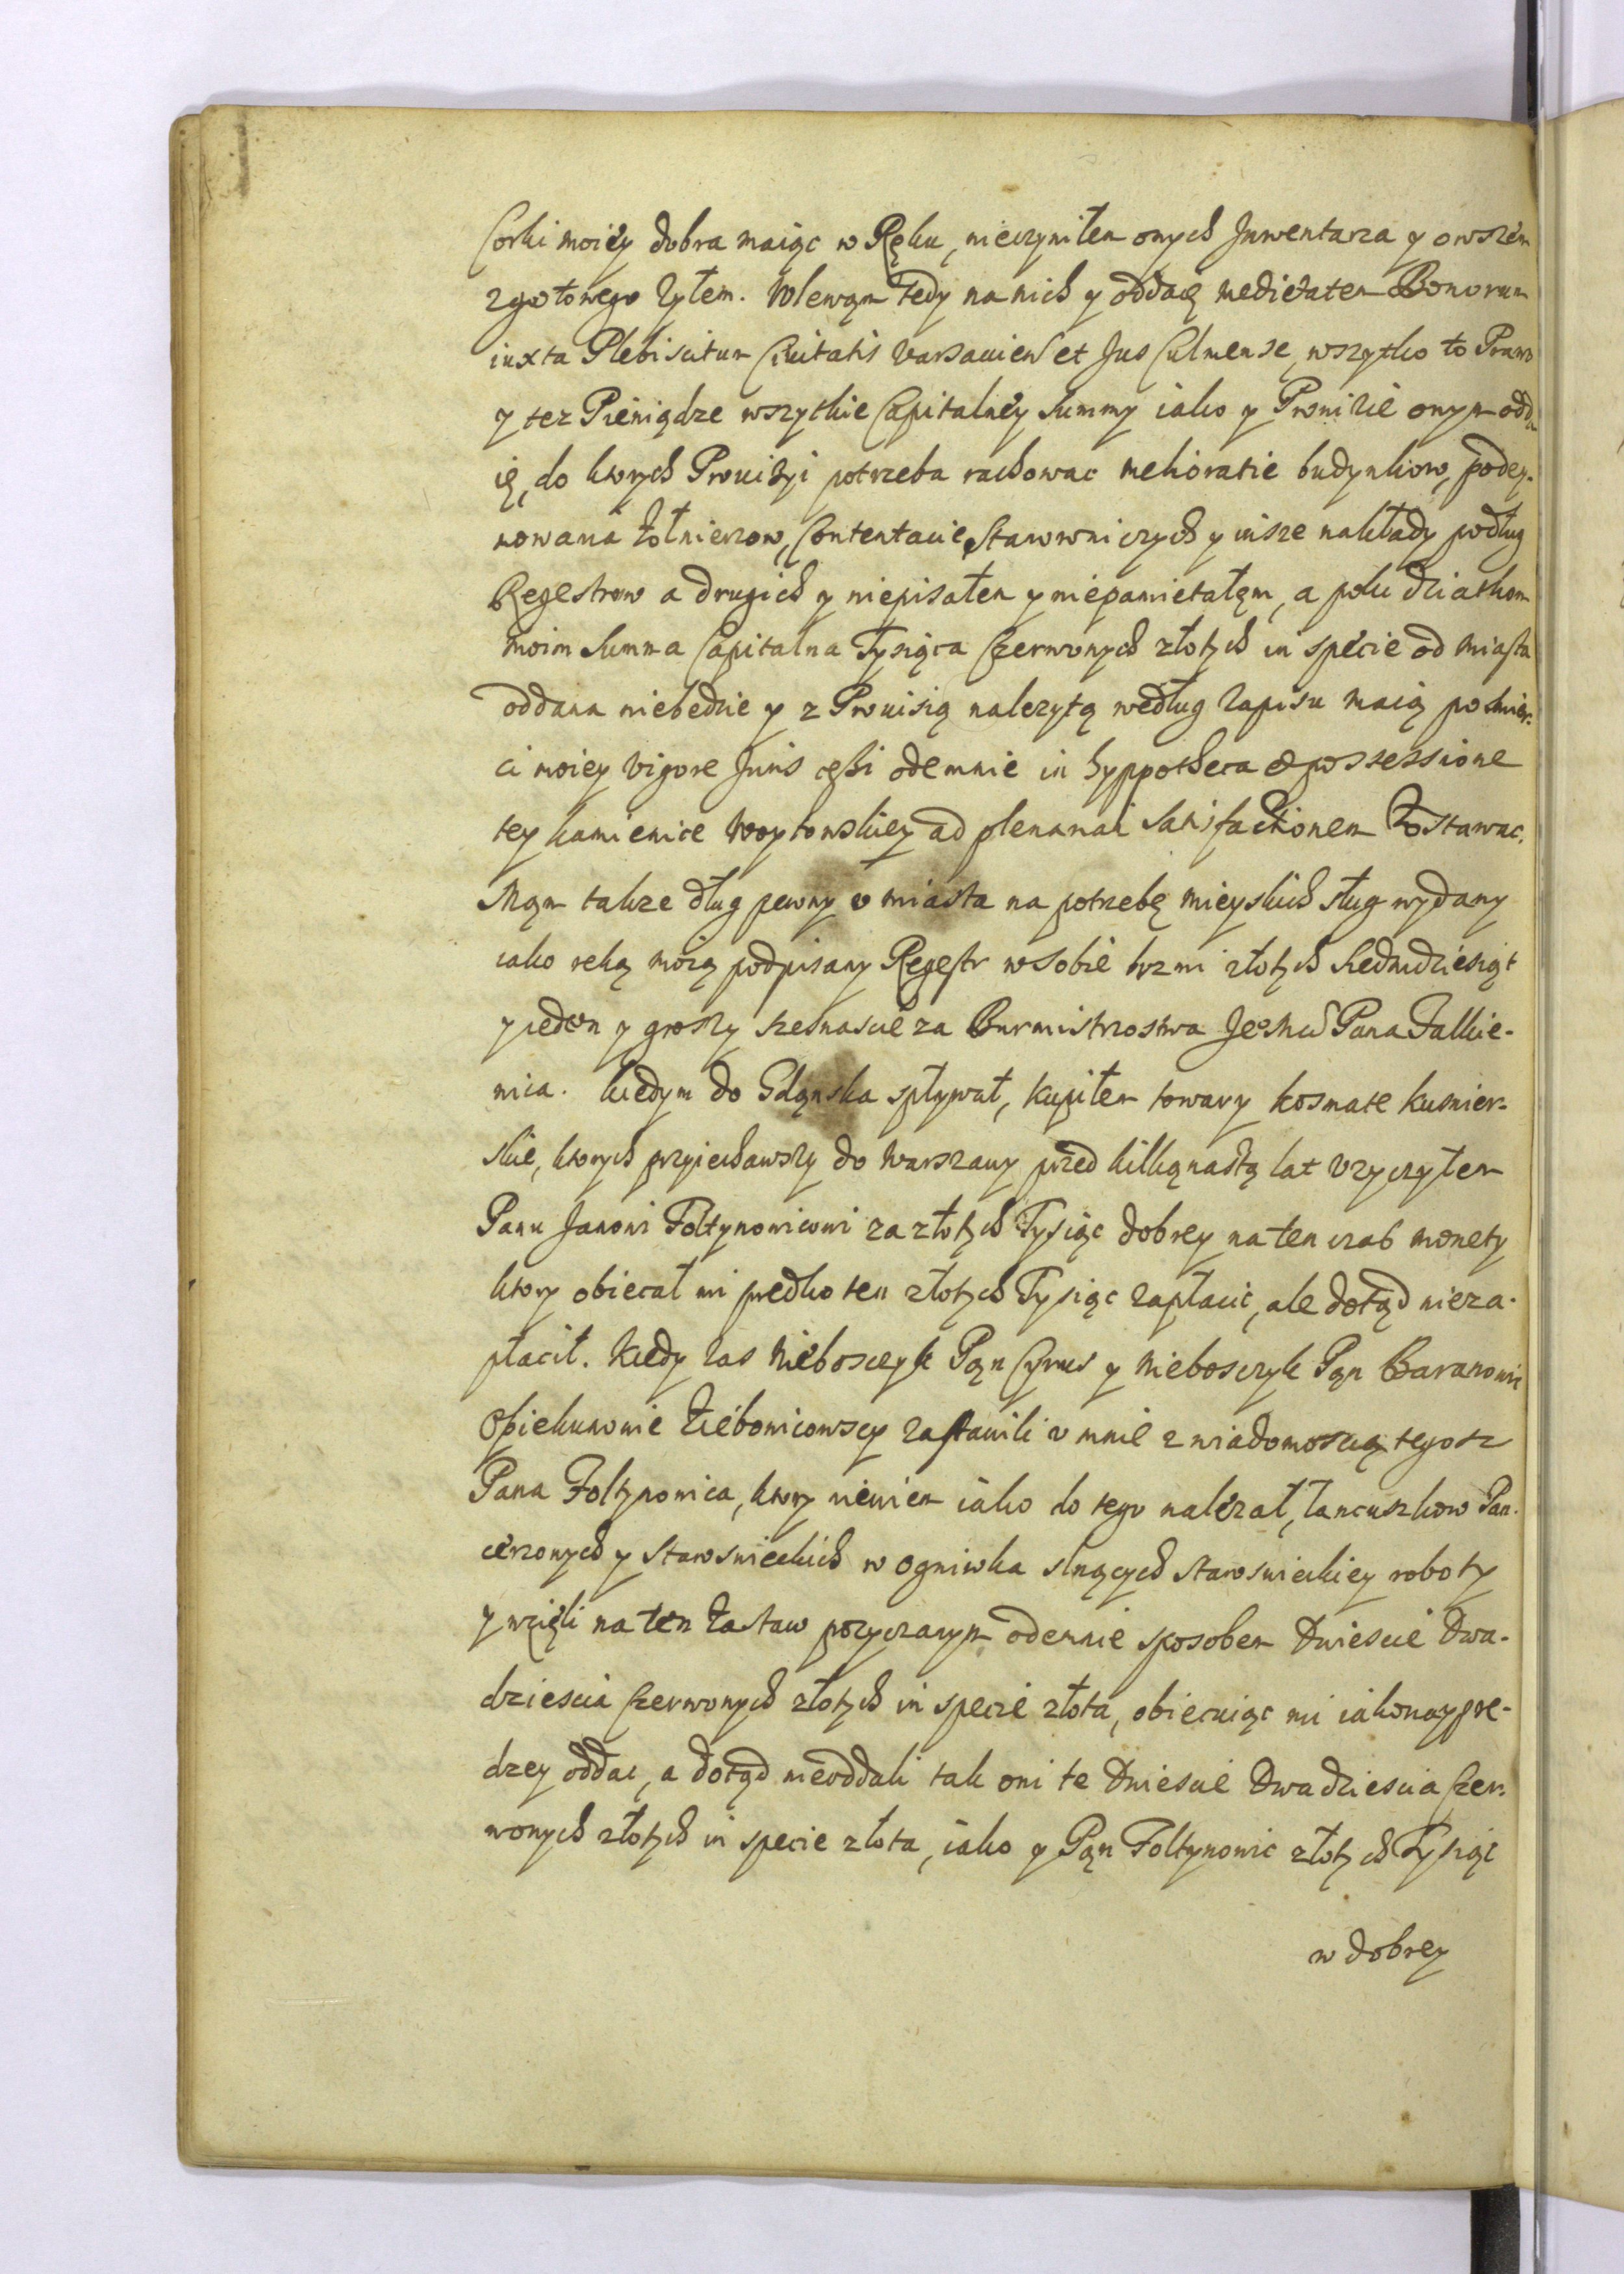 Corki moiey dobra maiąc w Ręku, nieczyniłem onych Inwentarza y owszem
zgotowego żyłem. Wlewąm tedy na nich y oddaię medietatem Bonorum
iuxta Plebiscitum Ciuitatis Varsauien et Jus Culmense, wszytko to Prawo
y tez Pieniądze wszytkie Capitalney Summy iako y Prowizie onym odda
ię, do ktorych Prouizyi potrzeba rachowac melioratie budynkow, podey-
mowania żołnierzow, Contentacie Starowniczych y insze nakłady podług
Regestrow a drugich y niepisałem y niepamietałęm, a poki dziatkom
moim Summa Capitalna Tysiąca Czerwonych złotych in specie od Miasta
oddana niebedzie y z Prouisią nalezytą według Zapisu maią po smier-
ci moiey vigore Juris ceßi odemnie in hyppotheca et possessione
tey kamienice Woytowskiey ad plenariam Satisfactionem Zostawac.
Mąm takze dług pewny v miasta na potrzebę mieyskich sług wydany
iako reką moią podpisany Regestr w sobie brzmi złotych siedmdziesiąt
y ieden y groszy szesnascie za Burmistrzostwa Jegomci Pana Falkie-
wica. Kiedym do Gdąnska spływał, kupiłem towary kosmate kusnier-
skie, ktorych przyiechawszy do Warszawy przed kilkąnastą lat vzyczyłem
Panu Janowi Foltynowicowi za złotych Tysiąc dobrey na ten czas monety
ktory obiecał mi predko ten złotych Tysiąc zapłacic, ale dotąd nieza-
płacił. Kiedy zas Nieboszczyk Pąn Cyrus y Nieboszczyk Pąn Baranowic
Opiekunowie Łiebonicowscy zastawili v mnie z wiadomoscią tegosz
Pana Foltynowica, ktory niewiem iako do tego nalezał, łancuszkow Pan-
cerzonych y Staroswieckich w ogniwka slnących Staroswieckiey roboty
y wzięli na ten Zastaw pozyczanym odemnie sposobem Dwiescie Dwa-
dziescia Czerwonych złotych in specie złota, obiecuiąc mi iakonaypre-
dzey oddac, a dotąd nieoddali tak oni te Dwiescie Dwadziescia Czer-
wonych złotych in specie złota, iako y Pąn Foltynowic złotych Tysiąc
w dobrey